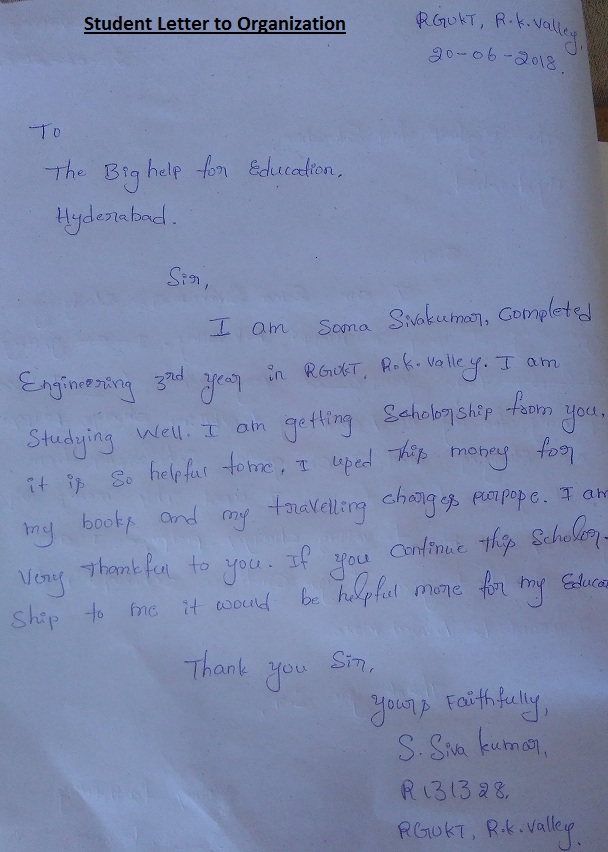 Student Letter to Organization
RGUKT, R.k.valley,
20-06-2018.
To
The Big help for Education,
Hyderabad.
Sir,
I am Soma Sivakumar, Completed
Engineering 3rd year in RGUKT, R.k.valley. I am
Studying well. I am getting Scholorship from you,
it is so helpful tome, I used this money for
my books and my travelling charges purpose. I am
very thankful to you. If you continue this Scholor-
ship to me it would be helpful more for my Educa
Thank you Sir,
yours Faithfully,
S. Siva kumar,
R131328,
RGUKT, R.k.valley.